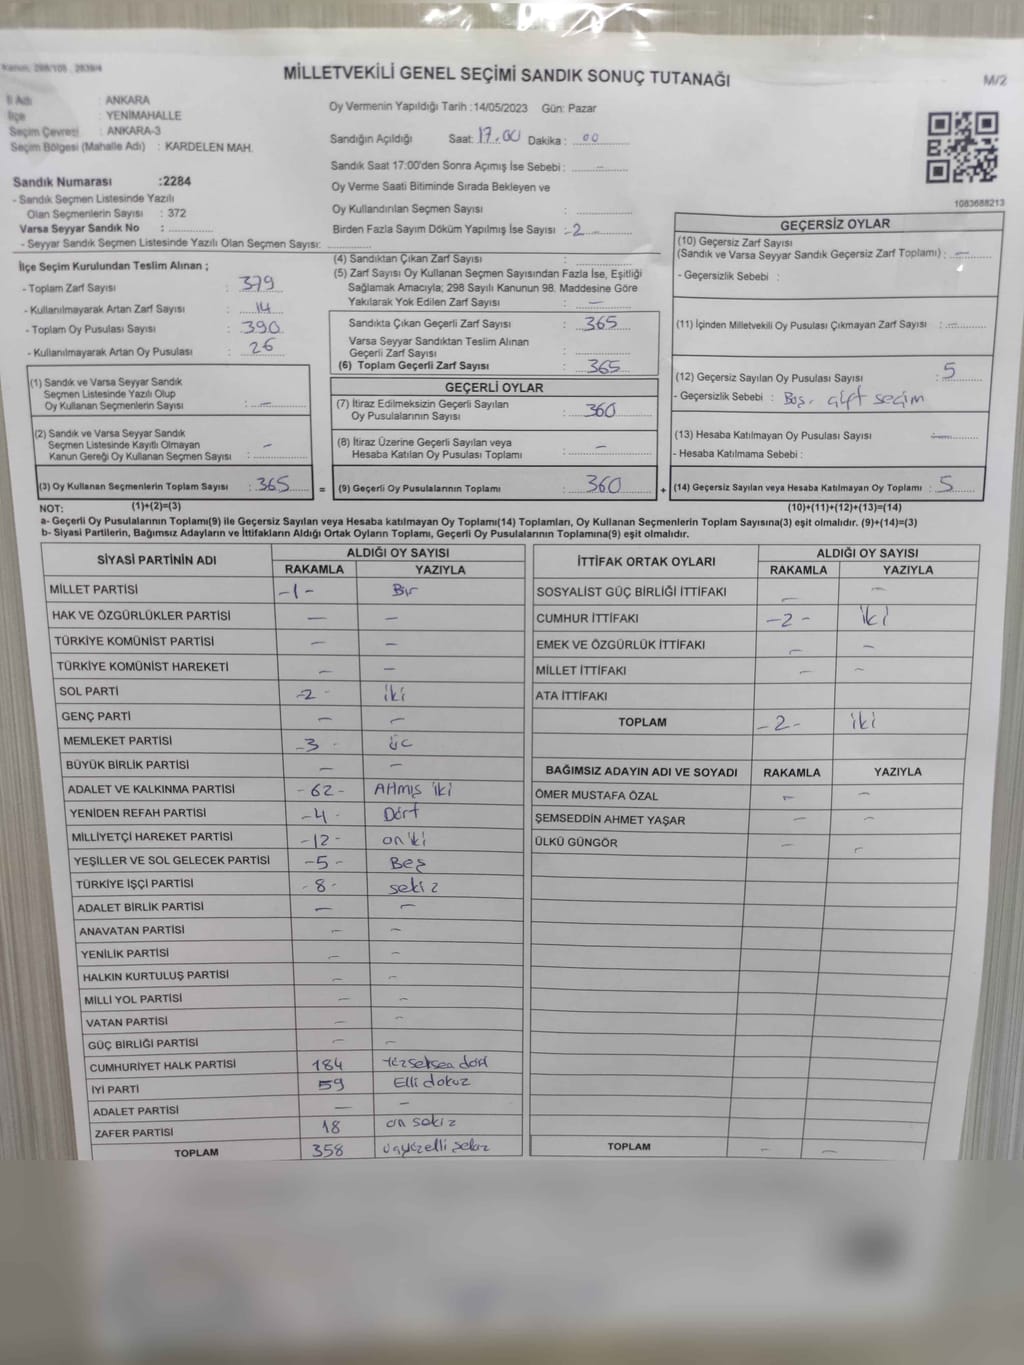 Kanun; 298/105 , 2839/4
MİLLETVEKİLİ GENEL SEÇİMİ SANDIK SONUÇ TUTANAĞI
M/2
İl Adı : ANKARA
İlçe : YENİMAHALLE
Seçim Çevresi : ANKARA-3
Seçim Bölgesi (Mahalle Adı) : KARDELEN MAH.
Oy Vermenin Yapıldığı Tarih :14/05/2023 Gün: Pazar
Sandığın Açıldığı Saat: 17.00 Dakika : 00
Sandık Saat 17:00'den Sonra Açımış İse Sebebi :
Oy Verme Saati Bitiminde Sırada Bekleyen ve
Oy Kullandırılan Seçmen Sayısı :
Birden Fazla Sayım Döküm Yapılmış İse Sayısı : -2
1083688213
Sandık Numarası :2284
- Sandık Seçmen Listesinde Yazılı
Olan Seçmenlerin Sayısı : 372
Varsa Seyyar Sandık No :
- Seyyar Sandık Seçmen Listesinde Yazılı Olan Seçmen Sayısı:
İlçe Seçim Kurulundan Teslim Alınan ;
- Toplam Zarf Sayısı : 379
- Kullanılmayarak Artan Zarf Sayısı : 14
- Toplam Oy Pusulası Sayısı : 390
- Kullanılmayarak Artan Oy Pusulası : 26
(1) Sandık ve Varsa Seyyar Sandık
Seçmen Listesinde Yazılı Olup
Oy Kullanan Seçmenlerin Sayısı : -
(2) Sandık ve Varsa Seyyar Sandık
Seçmen Listesinde Kayıtlı Olmayan -
Kanun Gereği Oy Kullanan Seçmen Sayısı :
(3) Oy Kullanan Seçmenlerin Toplam Sayısı : 365 =
(1)+(2)=(3)
(4) Sandıktan Çıkan Zarf Sayısı :
(5) Zarf Sayısı Oy Kullanan Seçmen Sayısından Fazla İse, Eşitliği
Sağlamak Amacıyla; 298 Sayılı Kanunun 98. Maddesine Göre
Yakılarak Yok Edilen Zarf Sayısı : -
Sandıkta Çıkan Geçerli Zarf Sayısı : 365
Varsa Seyyar Sandıktan Teslim Alınan
Geçerli Zarf Sayısı :
(6) Toplam Geçerli Zarf Sayısı : 365
GEÇERLİ OYLAR
(7) İtiraz Edilmeksizin Geçerli Sayılan
Oy Pusulalarının Sayısı : 360
(8) İtiraz Üzerine Geçerli Sayılan veya
Hesaba Katılan Oy Pusulası Toplamı : -
(9) Geçerli Oy Pusulalarının Toplamı : 360 +
GEÇERSİZ OYLAR
(10) Geçersiz Zarf Sayısı
(Sandık ve Varsa Seyyar Sandık Geçersiz Zarf Toplamı) : -
- Geçersizlik Sebebi :
(11) İçinden Milletvekili Oy Pusulası Çıkmayan Zarf Sayısı : -
(12) Geçersiz Sayılan Oy Pusulası Sayısı : 5
- Geçersizlik Sebebi : Boş, çift seçim
(13) Hesaba Katılmayan Oy Pusulası Sayısı : -
- Hesaba Katılmama Sebebi :
(14) Geçersiz Sayılan veya Hesaba Katılmayan Oy Toplamı : 5
(10)+(11)+(12)+(13)=(14)
NOT:
a- Geçerli Oy Pusulalarının Toplamı(9) ile Geçersiz Sayılan veya Hesaba katılmayan Oy Toplamı(14) Toplamları, Oy Kullanan Seçmenlerin Toplam Sayısına(3) eşit olmalıdır. (9)+(14)=(3)
b- Siyasi Partilerin, Bağımsız Adayların ve İttifakların Aldığı Ortak Oyların Toplamı, Geçerli Oy Pusulalarının Toplamına(9) eşit olmalıdır.
SİYASİ PARTİNİN ADI ALDIĞI OY SAYISI
RAKAMLA YAZIYLA
MİLLET PARTİSİ -1- Bir
HAK VE ÖZGÜRLÜKLER PARTİSİ - -
TÜRKİYE KOMÜNİST PARTİSİ - -
TÜRKİYE KOMÜNİST HAREKETİ - -
SOL PARTİ -2- iki
GENÇ PARTİ - -
MEMLEKET PARTİSİ -3- üç
BÜYÜK BİRLİK PARTİSİ - -
ADALET VE KALKINMA PARTİSİ -62- Atmış iki
YENİDEN REFAH PARTİSİ -4- Dört
MİLLİYETÇİ HAREKET PARTİSİ -12- on iki
YEŞİLLER VE SOL GELECEK PARTİSİ -5- Beş
TÜRKİYE İŞÇİ PARTİSİ -8- sekiz
ADALET BİRLİK PARTİSİ - -
ANAVATAN PARTİSİ - -
YENİLİK PARTİSİ - -
HALKIN KURTULUŞ PARTİSİ - -
MİLLİ YOL PARTİSİ - -
VATAN PARTİSİ - -
GÜÇ BİRLİĞİ PARTİSİ - -
CUMHURİYET HALK PARTİSİ 184 Yüzseksen dört
İYİ PARTİ 59 Elli dokuz
ADALET PARTİSİ - -
ZAFER PARTİSİ 18 on sekiz
TOPLAM 358 üçyüzelli sekiz
İTTİFAK ORTAK OYLARI ALDIĞI OY SAYISI
RAKAMLA YAZIYLA
SOSYALİST GÜÇ BİRLİĞİ İTTİFAKI - -
CUMHUR İTTİFAKI -2- iki
EMEK VE ÖZGÜRLÜK İTTİFAKI - -
MİLLET İTTİFAKI - -
ATA İTTİFAKI
TOPLAM -2- iki
BAĞIMSIZ ADAYIN ADI VE SOYADI RAKAMLA YAZIYLA
ÖMER MUSTAFA ÖZAL - -
ŞEMSEDDİN AHMET YAŞAR - -
ÜLKÜ GÜNGÖR - -
TOPLAM - -